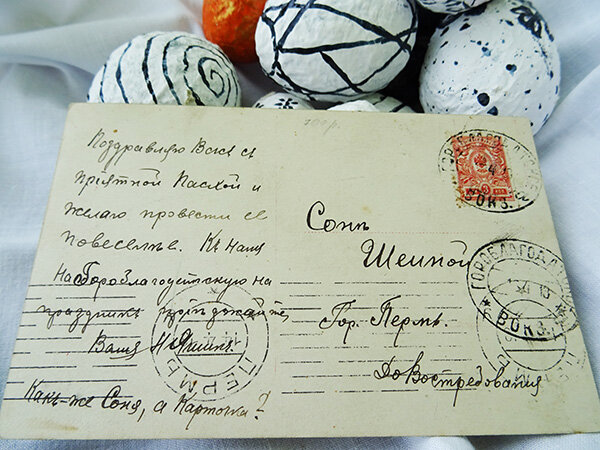 700р.
Поздравляю Васъ съ
приятной Пасхой и
желаю провести ее
повеселѣе. Къ намъ
на Гороблагодатскую на
праздникъ
Ваша
Какъ-же Соня, а Карточка?
Сонѣ
Шеиной
Гор. Пермь.
До Востребования
ГОРОБЛАГОДАТ
ВОКЗ.
ГОРОБЛАГОДАТ
* ВОКЗ. *
ПЕРМЬ